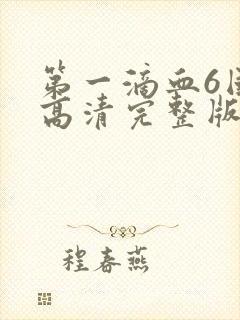 第一滴血6国
高清完整版
程春燕